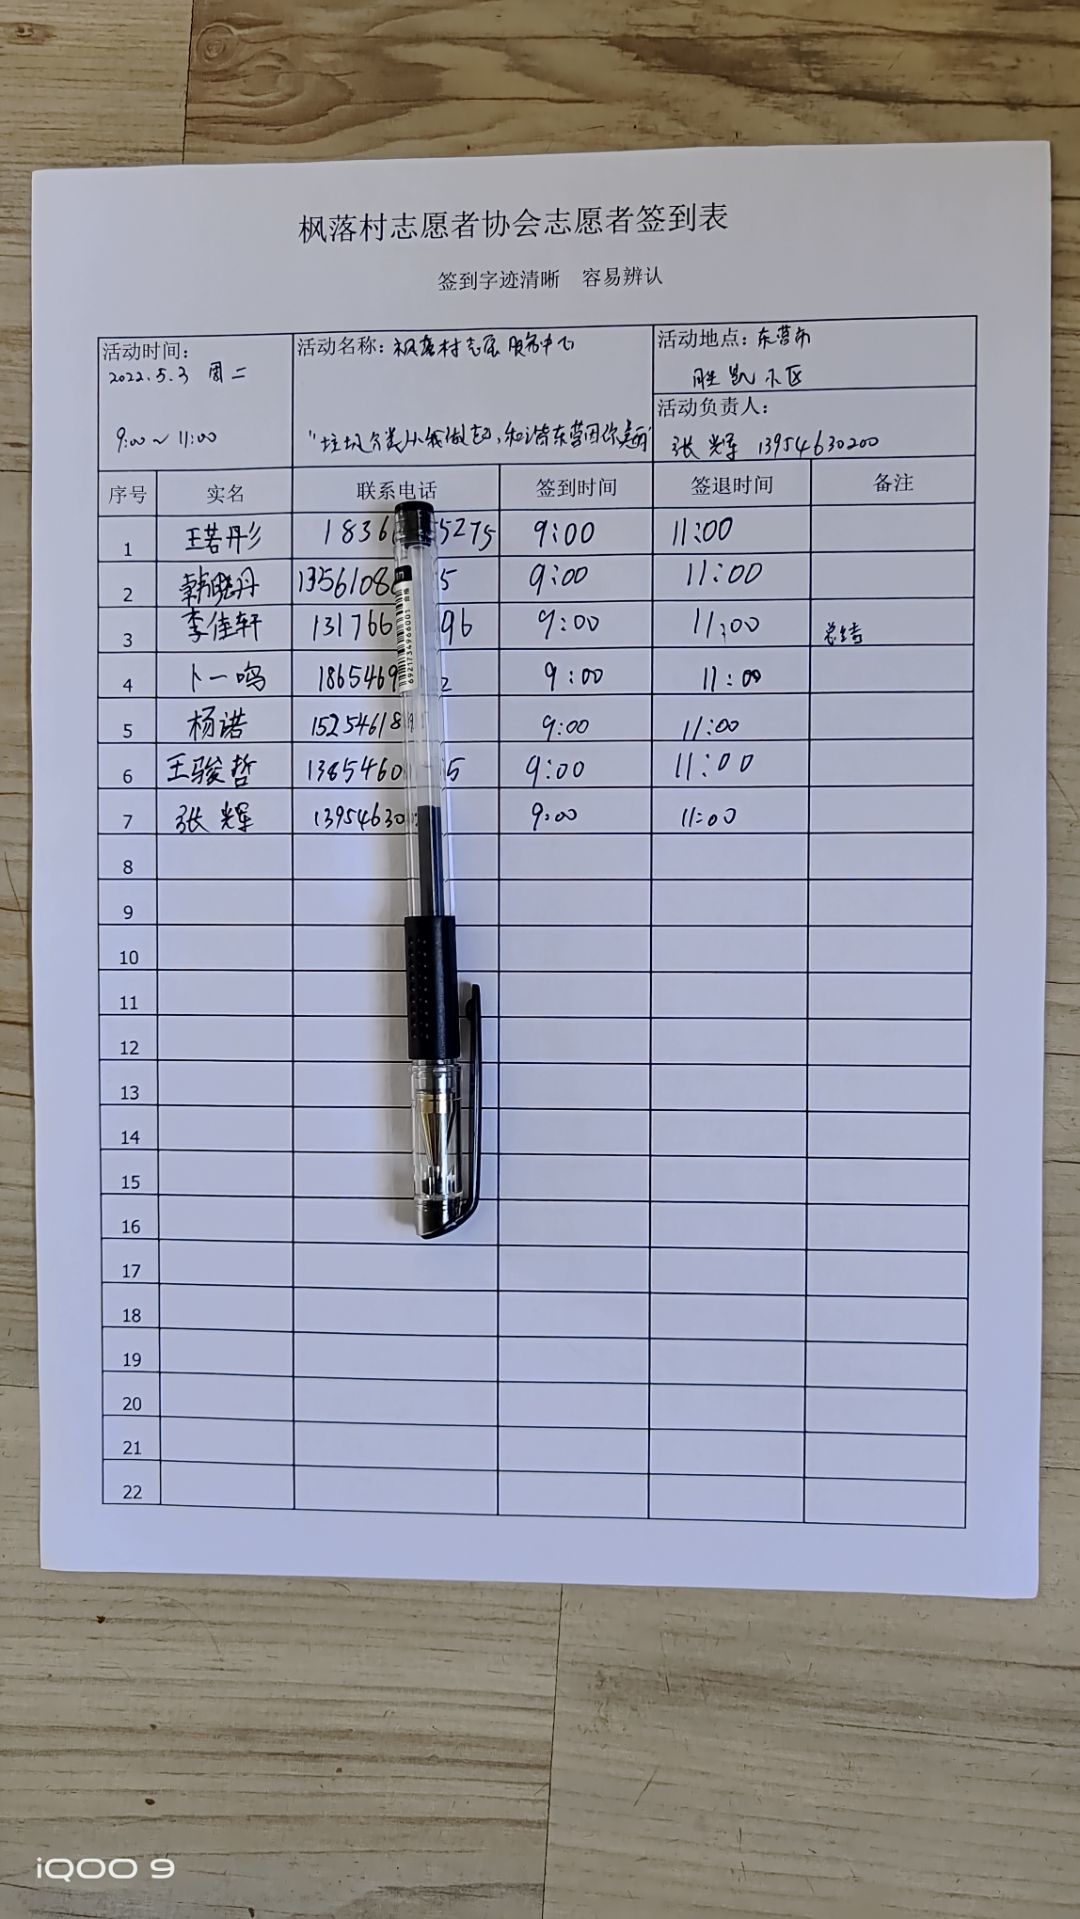 枫落村志愿者协会志愿者签到表
签到字迹清晰 容易辨认
活动时间:
2022.5.3 周二
9:00~11:00
活动名称: 枫落村志愿服务中心
"垃圾分类从我做起,和谐东营因你美丽"
活动地点: 东营市
胜凯小区
活动负责人:
张辉 13954630200
序号 实名 联系电话 签到时间 签退时间 备注
1 王若彤 1836 5275 9:00 11:00
2 韩晓丹 1356108 5 9:00 11:00
3 李佳轩 131766 96 9:00 11:00 总结
4 卜一鸣 1865469 2 9:00 11:00
5 杨诺 15254618 9:00 11:00
6 王骏哲 1385460 5 9:00 11:00
7 张辉 13954630 9:00 11:00
8
9
10
11
12
13
14
15
16
17
18
19
20
21
22
6921734966001
iQOO 9